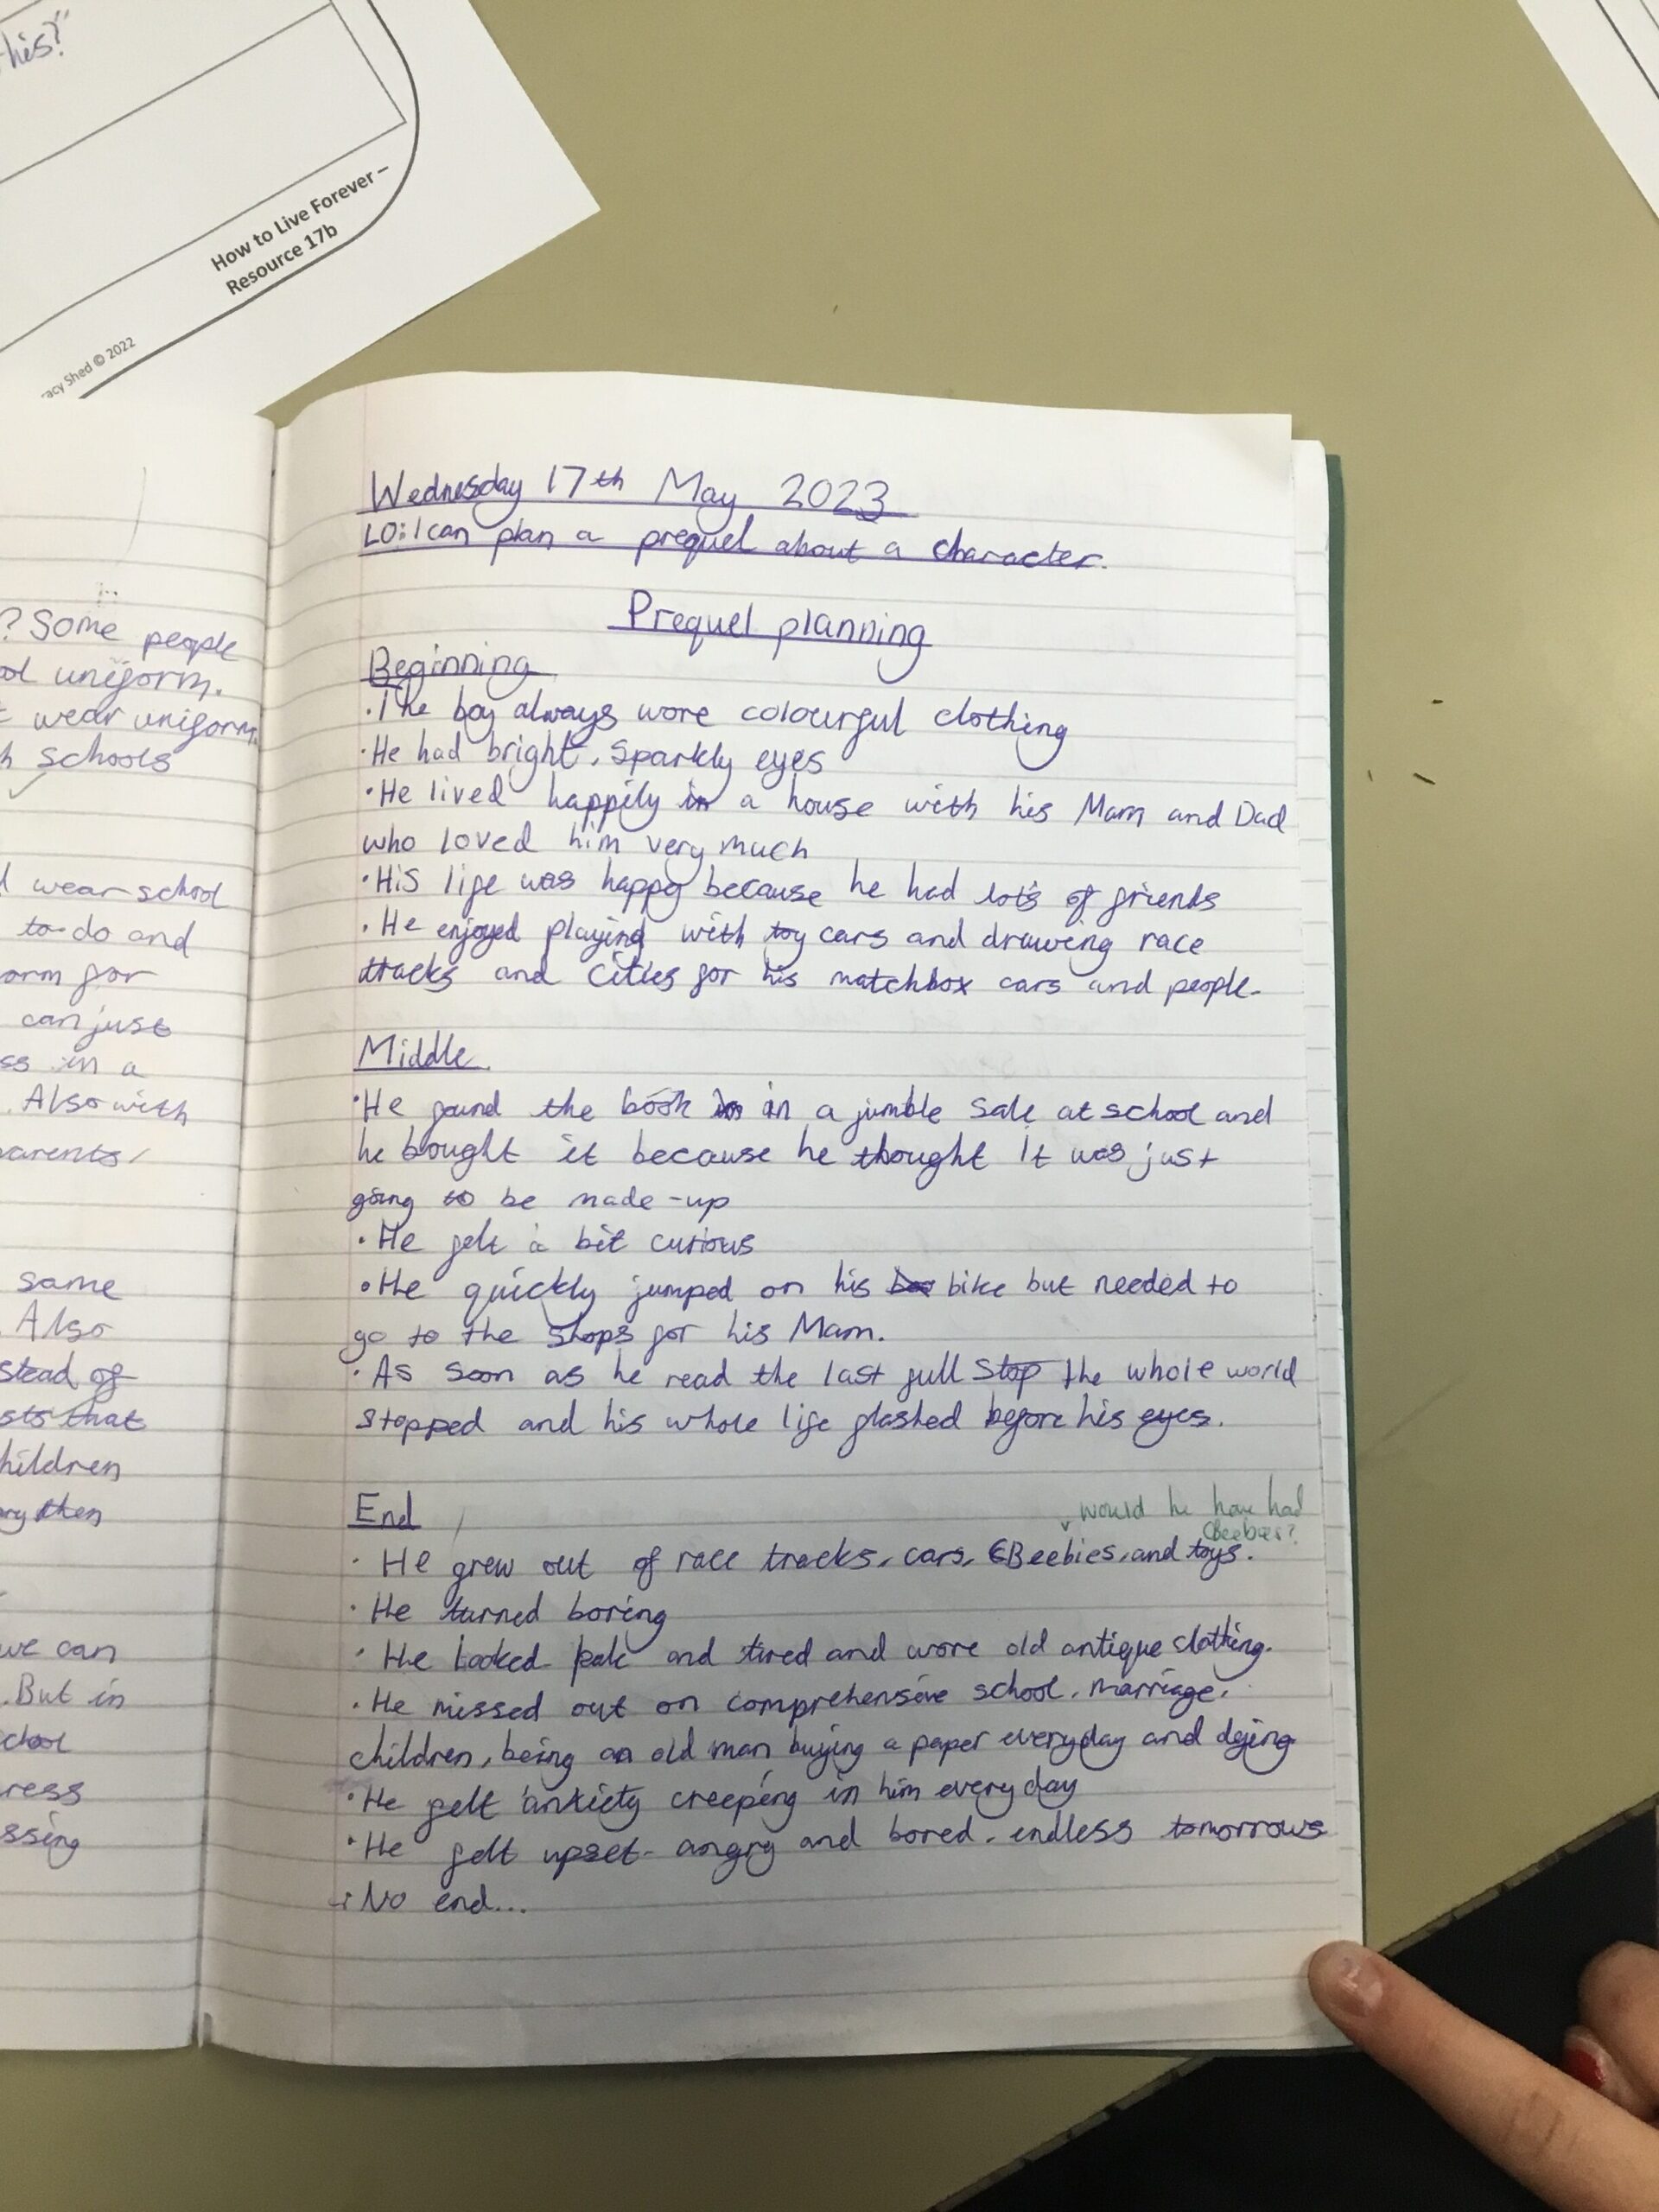 his?"
How to Live Forever –
Resource 17b
acy Shed © 2022
? Some people
ol uniform.
t wear uniform.
h schools
l wear school
to do and
orm for
can just
ss in a
. Also with
parents
same
. Also
stead of
sts that
hildren
ry then
we can
. But in
chool
ress
ssing
Wednesday 17th May 2023
LO: I can plan a prequel about a character.
Prequel planning
Beginning
· The boy always wore colourful clothing
· He had bright, sparkly eyes
· He lived happily in a house with his Mam and Dad
who loved him very much
· His life was happy because he had lots of friends
· He enjoyed playing with toy cars and drawing race
tracks and cities for his matchbox cars and people.
Middle
· He found the book in in a jumble sale at school and
he bought it because he thought it was just
going to be made-up
· He felt a bit curious
· He quickly jumped on his bike but needed to
go to the shops for his Mam.
· As soon as he read the last full stop the whole world
stopped and his whole life flashed before his eyes.
End
would he have had
CBeebies?
· He grew out of race tracks, cars, CBeebies, and toys.
· He turned boring
· He looked pale and tired and wore old antique clothing.
· He missed out on comprehensive school, marriage,
children, being an old man buying a paper everyday and dying
· He felt anxiety creeping in him everyday
· He felt upset, angry and bored, endless tomorrows
· No end...